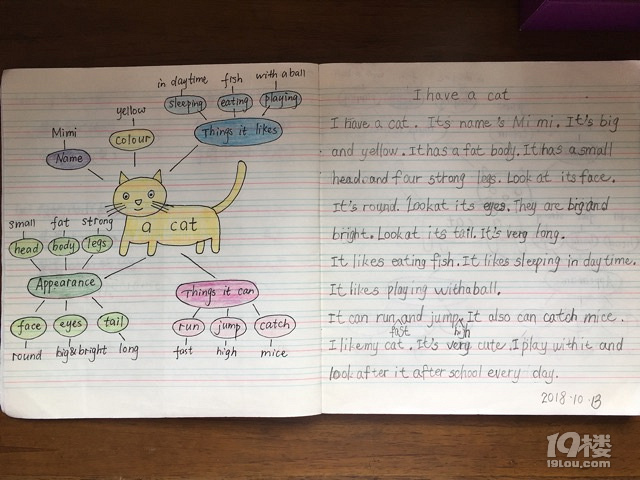 in daytime fish with a ball
sleeping eating playing
yellow
Things it likes
Mimi
colour
Name
a cat
small fat strong
head body legs
Appearance
Things it can
face eyes tail
run jump catch
round big&bright long
fast high mice
I have a cat
I have a cat. It's name's Mimi. It's big
and yellow. It has a fat body. It has a small
head and four strong legs. Look at its face.
It's round. Look at its eyes. They are big and
bright. Look at its tail. It's very long.
It likes eating fish. It likes sleeping in daytime.
It likes playing with a ball.
It can run fast and jump high. It also can catch mice.
I like my cat. It's very cute. I play with it and
look after it after school every day.
2018.10.13
19楼
19lou.com